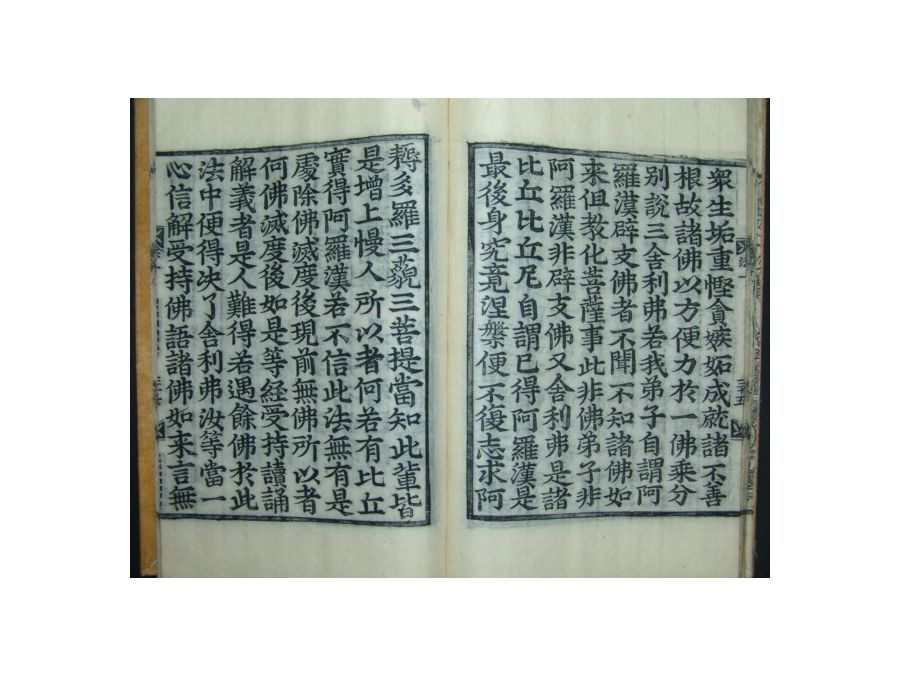 衆生垢重慳貪嫉妬成就諸不善
根故諸佛以方便力於一佛乘分
別說三舍利弗若我弟子自謂阿
羅漢辟支佛者不聞不知諸佛如
来但教化菩薩事此非佛弟子非
阿羅漢非辟支佛又舍利弗是諸
比丘比丘尼自謂已得阿羅漢是
最後身究竟涅槃便不復志求阿
耨多羅三藐三菩提當知此輩皆
是增上慢人所以者何若有比丘
實得阿羅漢若不信此法無有是
處除佛滅度後現前無佛所以者
何佛滅度後如是等経受持讀誦
解義者是人難得若遇餘佛於此
法中便得决了舍利弗汝等當一
心信解受持佛語諸佛如来言無